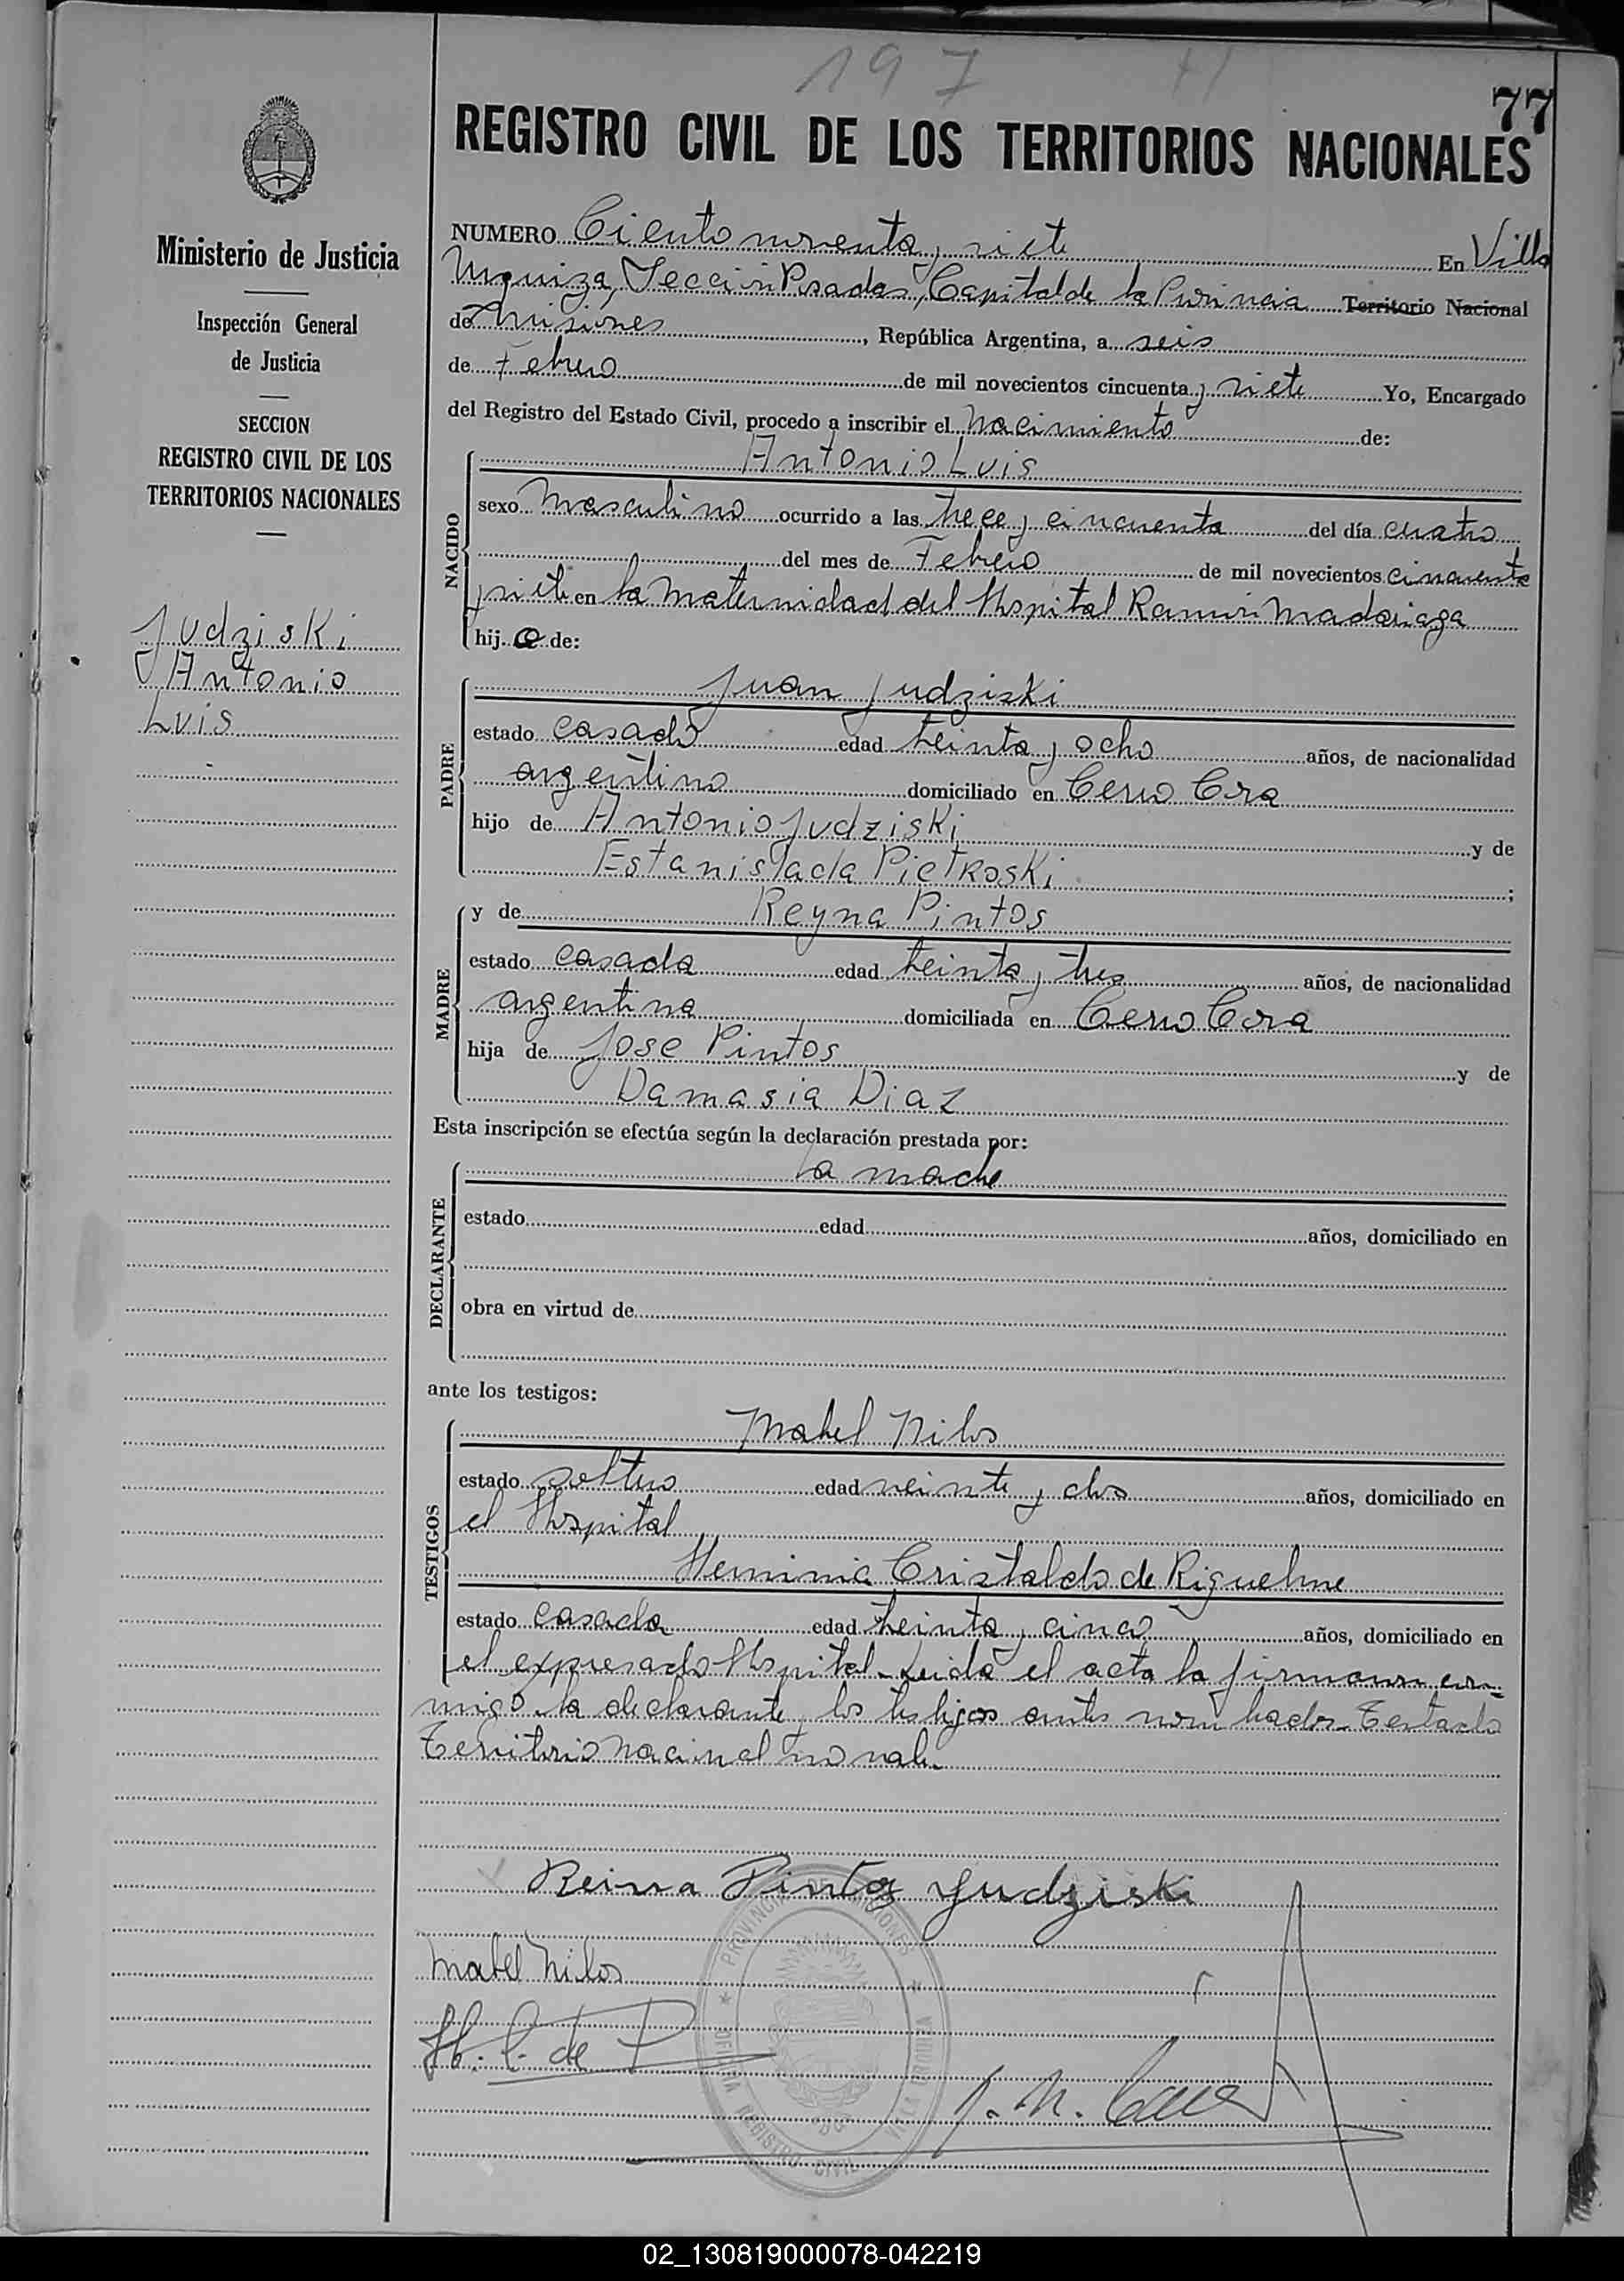 197
77
REGISTRO CIVIL DE LOS TERRITORIOS NACIONALES
Ministerio de Justicia
Inspección General
de Justicia
SECCION
REGISTRO CIVIL DE LOS
TERRITORIOS NACIONALES
Judziski
Antonio
Luis
NUMERO Ciento noventa y siete En Villa
Urquiza, Sección Posadas, Capital de la Provincia Territorio Nacional
de Misiones, República Argentina, a seis
de Febrero de mil novecientos cincuenta y siete Yo, Encargado
del Registro del Estado Civil, procedo a inscribir el nacimiento de:
NACIDO
Antonio Luis
sexo masculino ocurrido a las trece y cincuenta del día cuatro
del mes de Febrero de mil novecientos cincuenta
y siete en la Maternidad del Hospital Ramón Madariaga
hijo de:
PADRE
Juan Judziski
estado casado edad treinta y ocho años, de nacionalidad
argentino domiciliado en Cerro Cora
hijo de Antonio Judziski y de
Estanislada Pietroski;
MADRE
y de Reyna Pintos
estado casada edad treinta y tres años, de nacionalidad
argentina domiciliada en Cerro Cora
hija de Jose Pintos y de
Damasia Diaz
Esta inscripción se efectúa según la declaración prestada por:
DECLARANTE
la madre
estado edad años, domiciliado en
obra en virtud de
ante los testigos:
TESTIGOS
Mabel Nilos
estado soltero edad veinte y dos años, domiciliado en
el Hospital
Herminia Cristaldo de Riquelme
estado casada edad treinta y cinco años, domiciliado en
el expresado Hospital. Leida el acta la firmaron con-
migo la declarante y los testigos antes nombrados. Testado
Territorio Nacional no vale.
Reina Pintos Judziski
Mabel Nilos
H. C. de
J. M.
PROVINCIA DE MISIONES
OFICINA REGISTRO CIVIL
VILLA URQUIZA
02_130819000078-042219